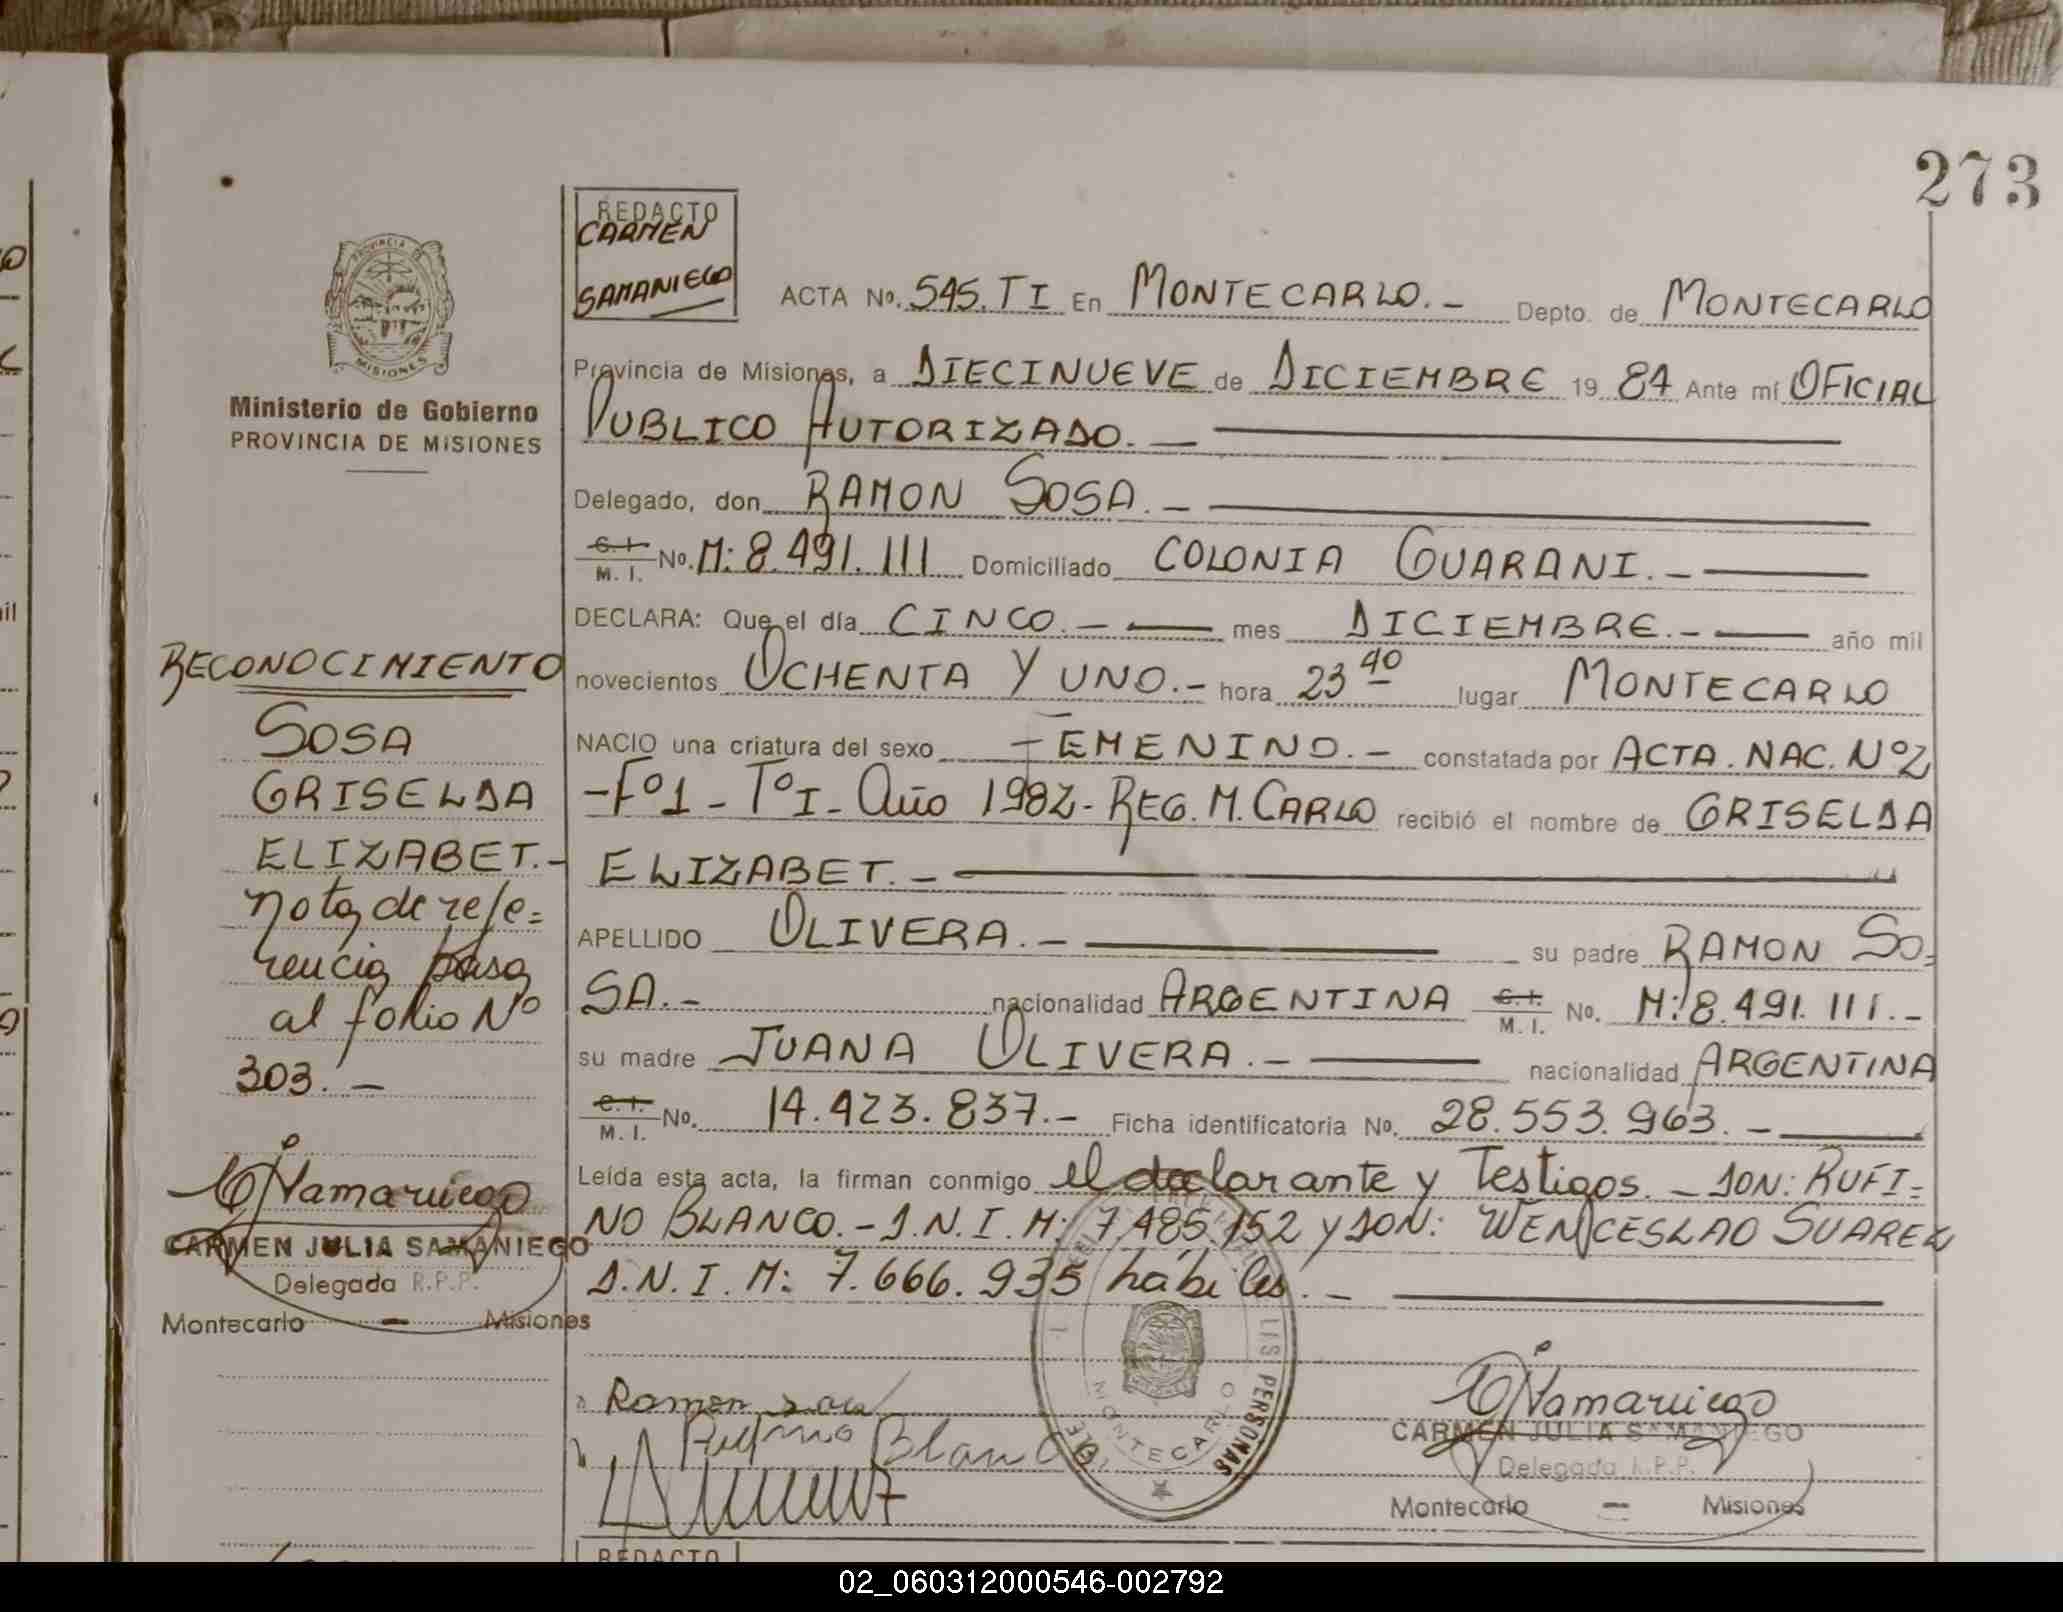 273
REDACTO
CARMEN
SAMANIEGO
PROVINCIA DE
MISIONES
Ministerio de Gobierno
PROVINCIA DE MISIONES
ACTA No. 545. TI En MONTECARLO.- Depto. de MONTECARLO
Provincia de Misiones, a DIECINUEVE de DICIEMBRE 19 84 Ante mí OFICIAL
PUBLICO AUTORIZADO.-
Delegado, don RAMON SOSA.-
C. I. M. I. No. M: 8.491.111 Domiciliado COLONIA GUARANI.-
DECLARA: Que el día CINCO.- mes DICIEMBRE.- año mil
novecientos OCHENTA Y UNO.- hora 23 40 lugar MONTECARLO
NACIO una criatura del sexo FEMENINO.- constatada por ACTA. NAC. Nº2
-Fº1- TºI- Año 1982- REG. M. CARLO recibió el nombre de GRISELDA
ELIZABET.-
APELLIDO OLIVERA.- su padre RAMON SO=
SA.- nacionalidad ARGENTINA C. I. M. I. No. M: 8.491.111.-
su madre JUANA OLIVERA.- nacionalidad ARGENTINA
C. I. M. I. No. 14.423.837.- Ficha identificatoria No. 28.553.963.-
Leída esta acta, la firman conmigo el declarante y Testigos.- DON: RUFI=
NO BLANCO.- D.N.I. M: 7.485.152 y DON: WENCESLAO SUAREZ
D.N.I. M: 7.666.935 hábiles.-
RECONOCIMIENTO
SOSA
GRISELDA
ELIZABET.-
nota de refe=
rencia pasa
al folio Nº
303.-
CARMEN JULIA SAMANIEGO
Delegada R.P.P.
Montecarlo - Misiones
Ramon Sosa
Rufino Blanco
PERSONAS
MONTECARLO
CARMEN JULIA SAMANIEGO
Delegada R.P.P.
Montecarlo - Misiones
REDACTO
02_060312000546-002792